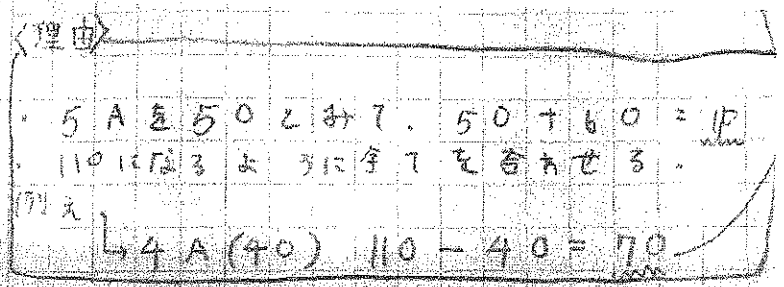 〈理由〉
・5Aを50とみて、50+60=110
・110になるように全てを合わせる。
例え
↳4A(40) 110-40=70